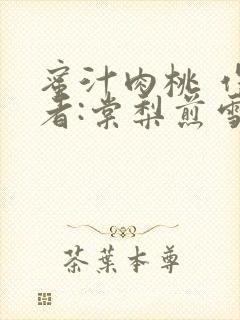 蜜汁肉桃
者:棠梨煎雪
茶葉本尊